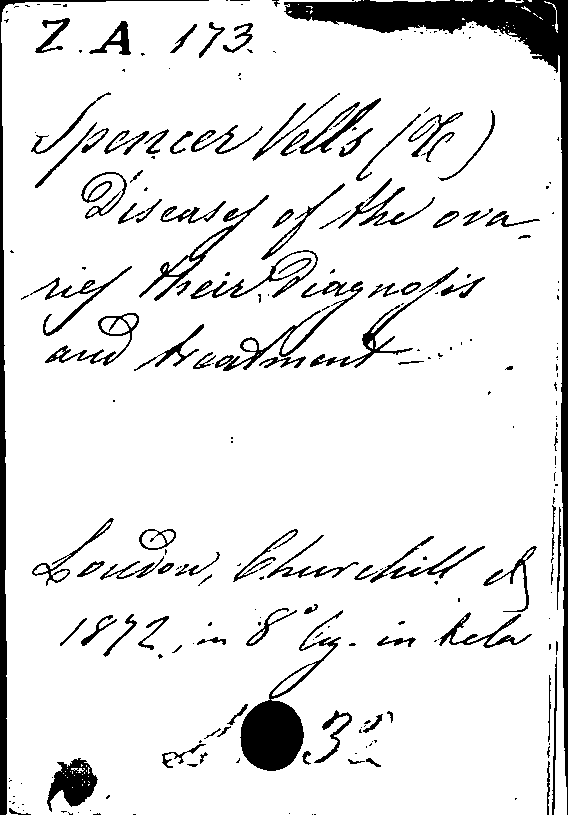 Z. A. 173.
Spencer Vells (T.)
Diseases of the ova-
ries their Diagnosis
and treatment
London, Churchill
1872, in 8° lg. in tela
32